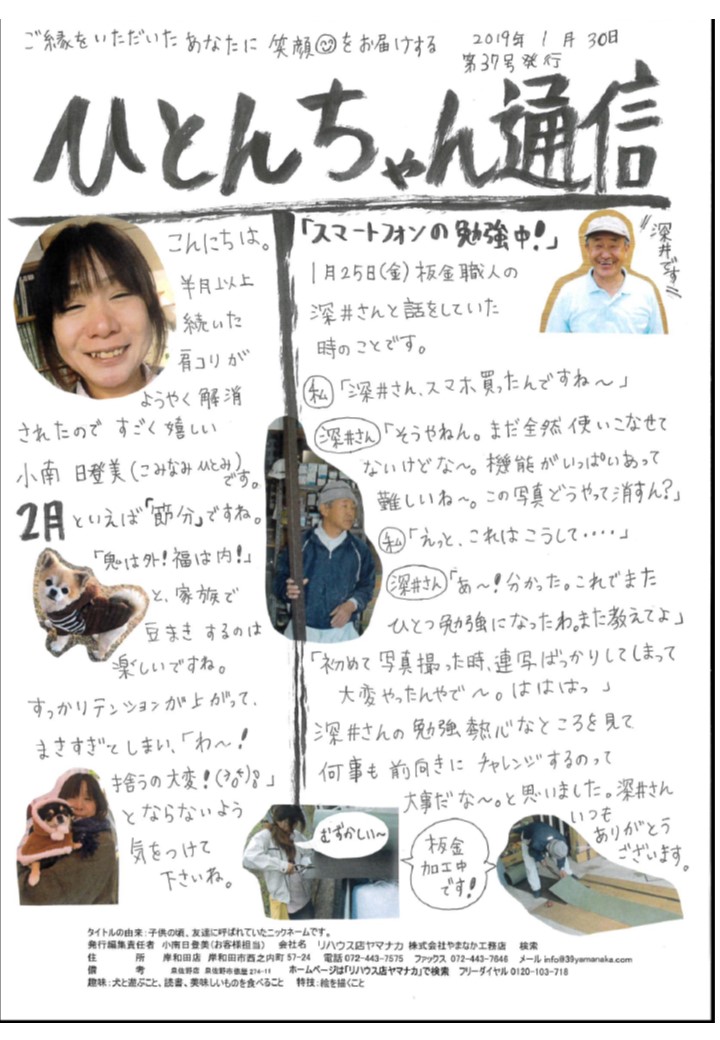 ご縁をいただいたあなたに笑顔をお届けする
2019年1月30日
第37号発行
ひとんちゃん通信
こんにちは。
半月以上
続いた
肩コリが
ようやく解消
されたので すごく嬉しい
小南 日登美(こみなみひとみ)
です。
2月といえば「節分」ですね。
「鬼は外!福は内!」
と、家族で
豆まきするのは
楽しいですね。
すっかりテンションが上がって、
まきすぎてしまい、「わ〜!
拾うの大変!
」
とならないよう
気をつけて
下さいね。
「スマートフォンの勉強中!」
深井です
1月25日(金)板金職人の
深井さんと話をしていた
時のことです。
私「深井さん、スマホ買ったんですね〜」
深井さん「そうやねん。まだ全然使いこなせて
ないけどな〜。機能がいっぱいあって
難しいね〜。この写真どうやって消すん?」
私「えっと、これはこうして・・・・」
深井さん「あ〜!分かった。これでまた
ひとつ勉強になったわ。また教えてよ」
「初めて写真撮った時、連写ばっかりしてしまって
大変やったんやで〜。はははっ」
深井さんの勉強熱心なところを見て
何事も前向きにチャレンジするのって
大事だな〜。と思いました。深井さん
いつも
ありがとう
ございます。
むずかしい〜
板金
加工中
です!
タイトルの由来:子供の頃、友達に呼ばれていたニックネームです。
発行編集責任者 小南日登美(お客様担当) 会社名 リハウス店ヤマナカ 株式会社やまなか工務店 検索
住 所 岸和田店 岸和田市西之内町57-24 電話072-443-7575 ファックス 072-443-7646 メール info@39yamanaka.com
備 考 泉佐野店 泉佐野市俵屋274-11 ホームページは「リハウス店ヤマナカ」で検索 フリーダイヤル0120-103-718
趣味:犬と遊ぶこと、読書、美味しいものを食べること 特技:絵を描くこと